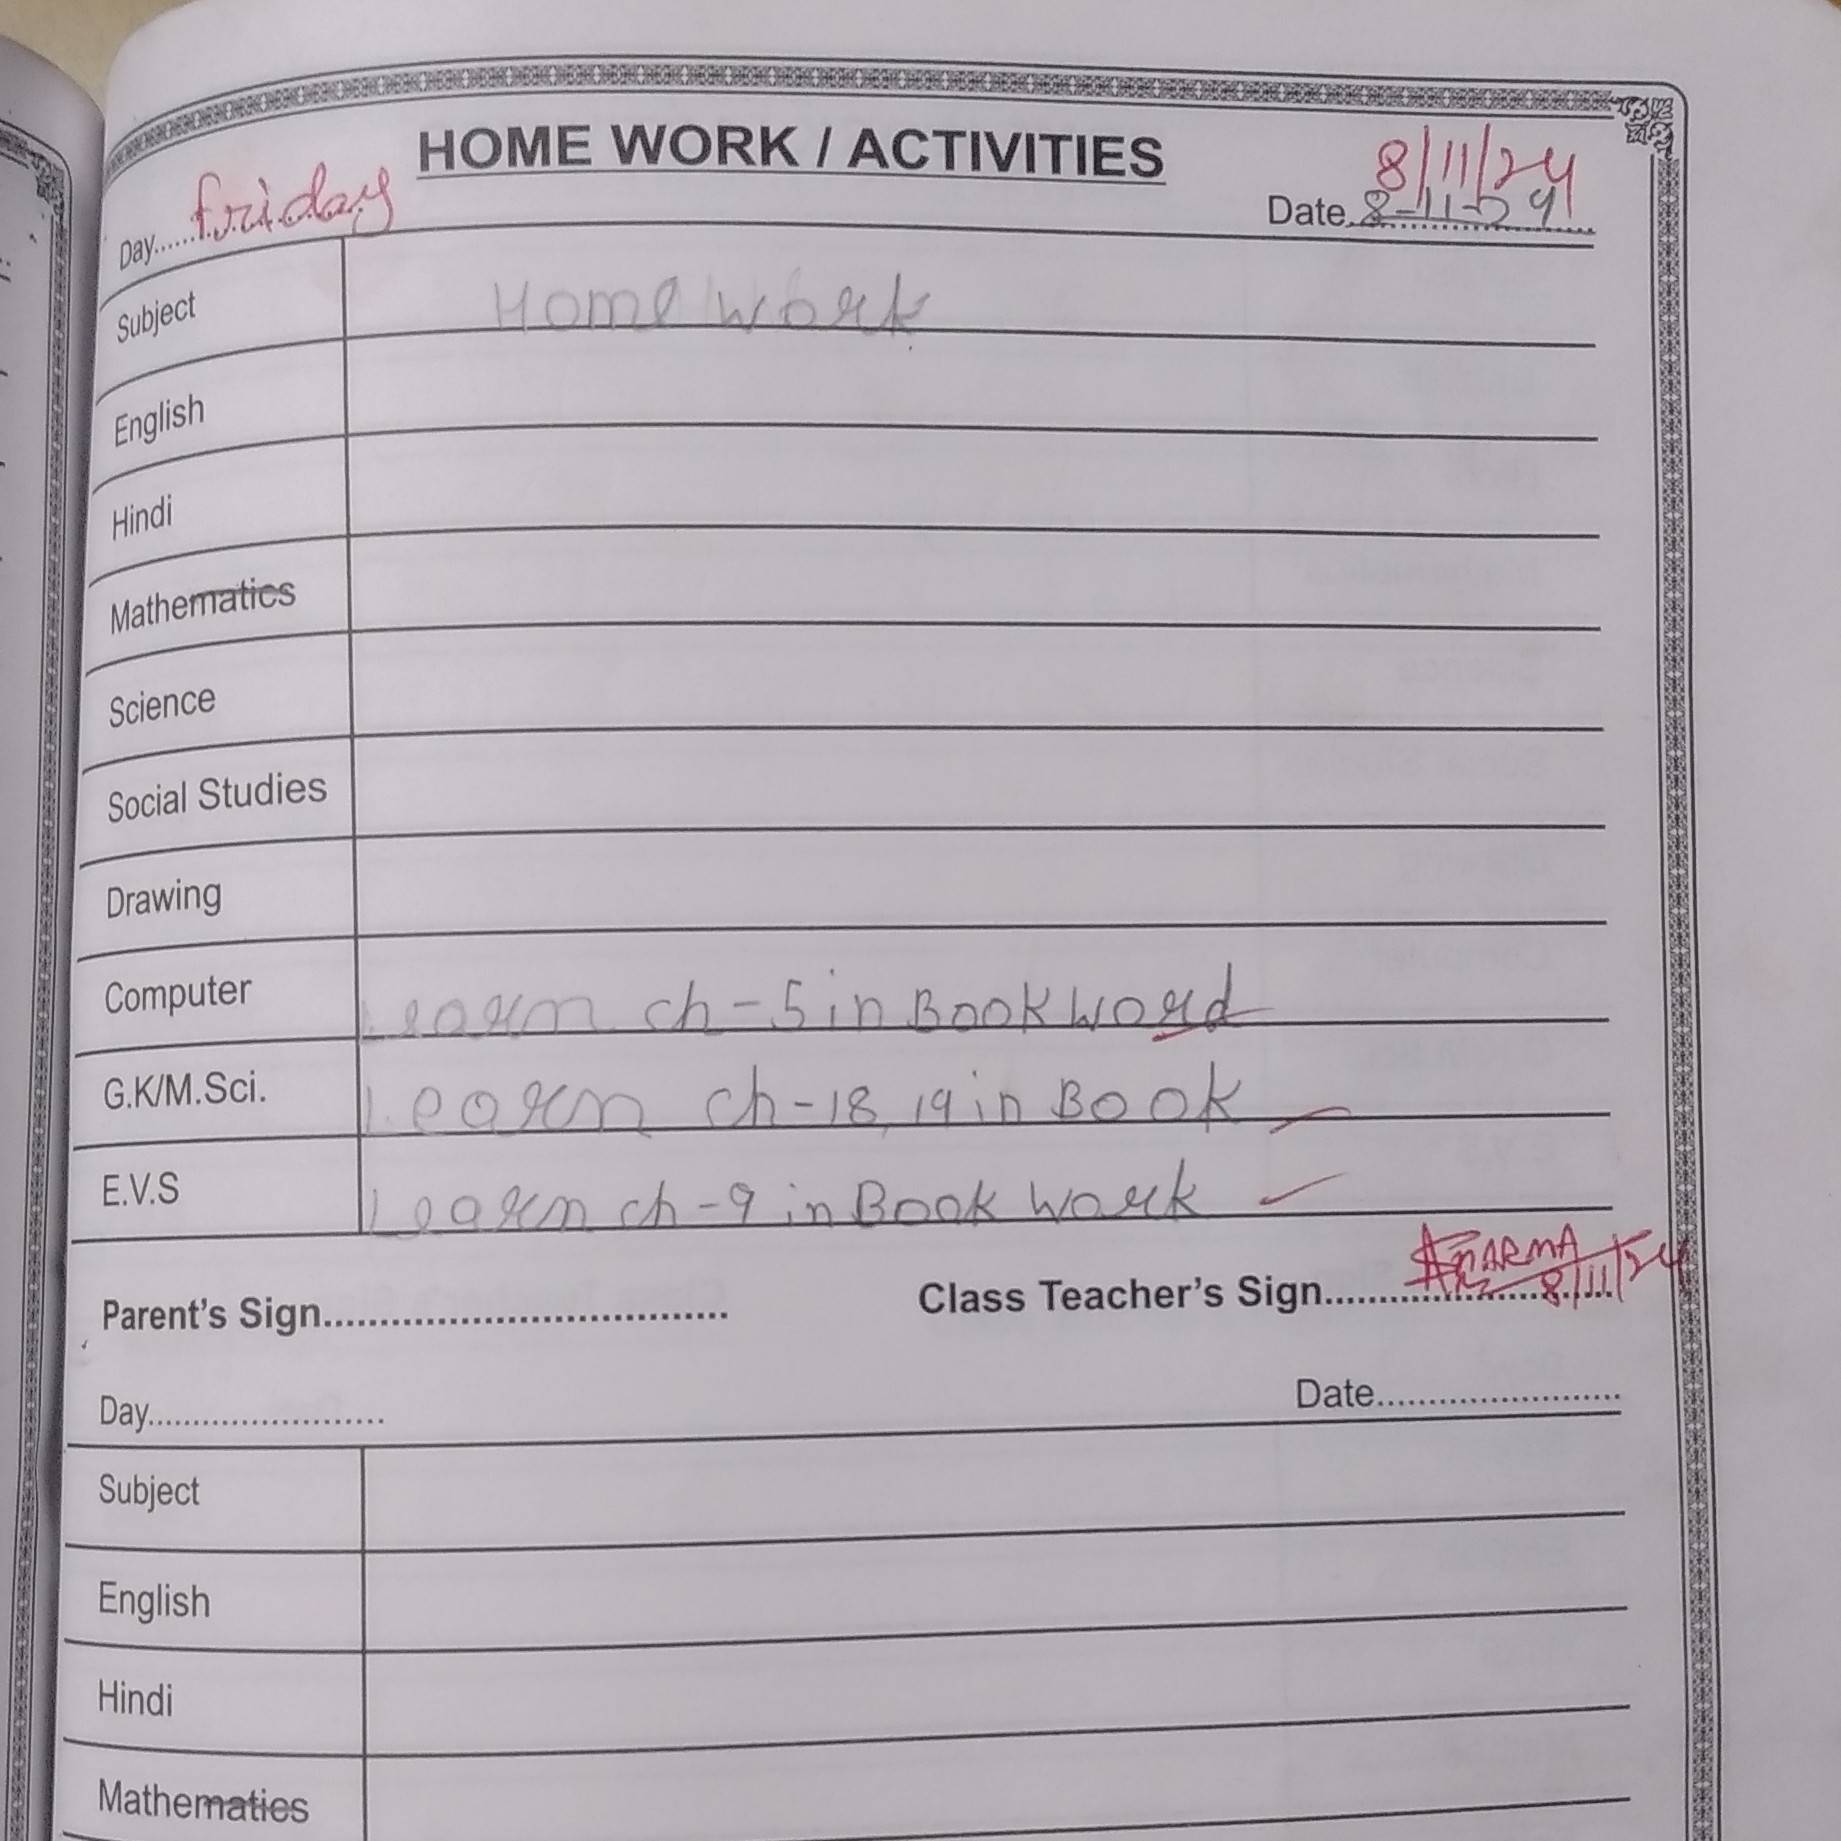 HOME WORK / ACTIVITIES
8/11/24
Day......friday
Date 8-11-24
Subject Home Work
English
Hindi
Mathematics
Science
Social Studies
Drawing
Computer Learn ch-5 in Book Word
G.K/M.Sci. Learn ch-18, 19 in Book
E.V.S Learn ch-9 in Book Work
Parent's Sign....................................
Class Teacher's Sign............................ 8/11/24
Day........................
Date........................
Subject
English
Hindi
Mathematics